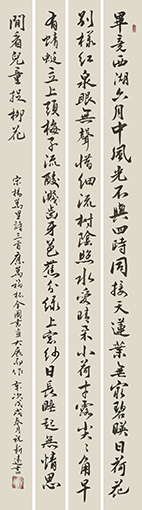 畢竟西湖六月中風光不與四時同接天蓮葉無窮碧映日荷花
別樣紅泉眼無聲惜細流樹陰照水愛晴柔小荷才露尖々角早
有蜻蜓立上頭梅子流酸濺齒牙芭蕉分綠上窗紗日長睡起無情思
閒看兒童捉柳花
宋楊萬里詩三首 全國書畫大展 戊戌春月祝新 書